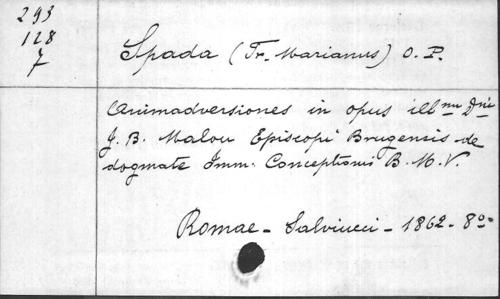 293
128
7
Spada (Fr. Marianus) O. P.
Animadversiones in opus illmi Dni
J. B. Malou Episcopi Brugensis de
dogmate Imm. Conceptionis B. M. V.
Romae - Salviucci - 1862 - 8º